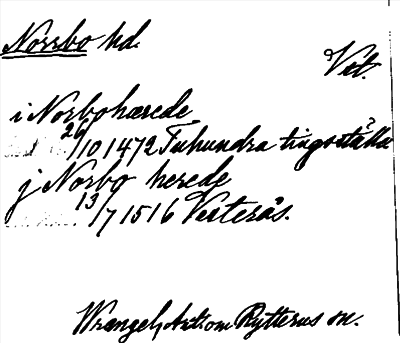 Norrbo hd.
Vstl.
i Norbohærede
26/10 1472 Tuhundra tingsställe
j Norbo herede
13/7 1516 Vesterås.
Wrangel, Axt: om Rytterns sn.